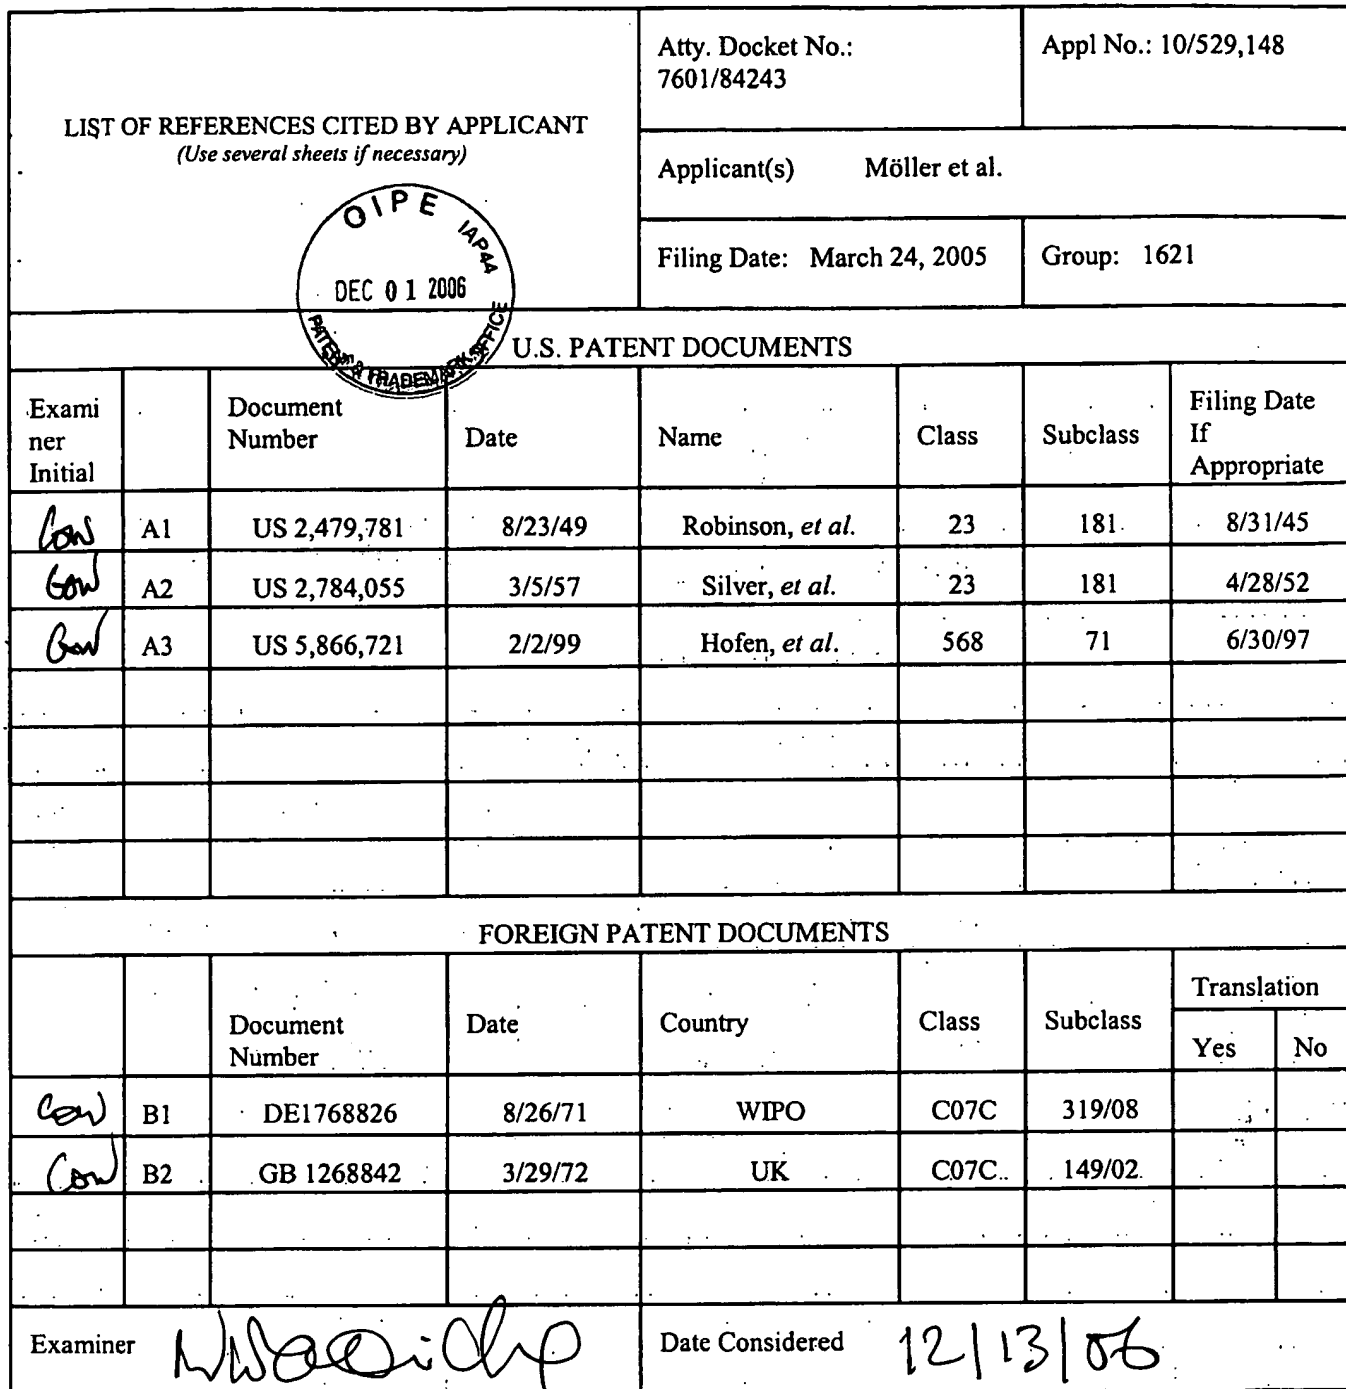 LIST OF REFERENCES CITED BY APPLICANT
(Use several sheets if necessary)
Atty. Docket No.:
7601/84243
Appl No.: 10/529,148
Applicant(s) Möller et al.
Filing Date: March 24, 2005
Group: 1621
OIPE IAP44
DEC 01 2006
PATENT & TRADEMARK OFFICE
U.S. PATENT DOCUMENTS
Exami
ner
Initial
Document
Number
Date
Name
Class
Subclass
Filing Date
If
Appropriate
A1 US 2,479,781 8/23/49 Robinson, et al. 23 181 8/31/45
A2 US 2,784,055 3/5/57 Silver, et al. 23 181 4/28/52
A3 US 5,866,721 2/2/99 Hofen, et al. 568 71 6/30/97
FOREIGN PATENT DOCUMENTS
Document
Number
Date
Country
Class
Subclass
Translation
Yes No
B1 DE1768826 8/26/71 WIPO C07C 319/08
B2 GB 1268842 3/29/72 UK C07C 149/02
Examiner
Date Considered 12/13/06